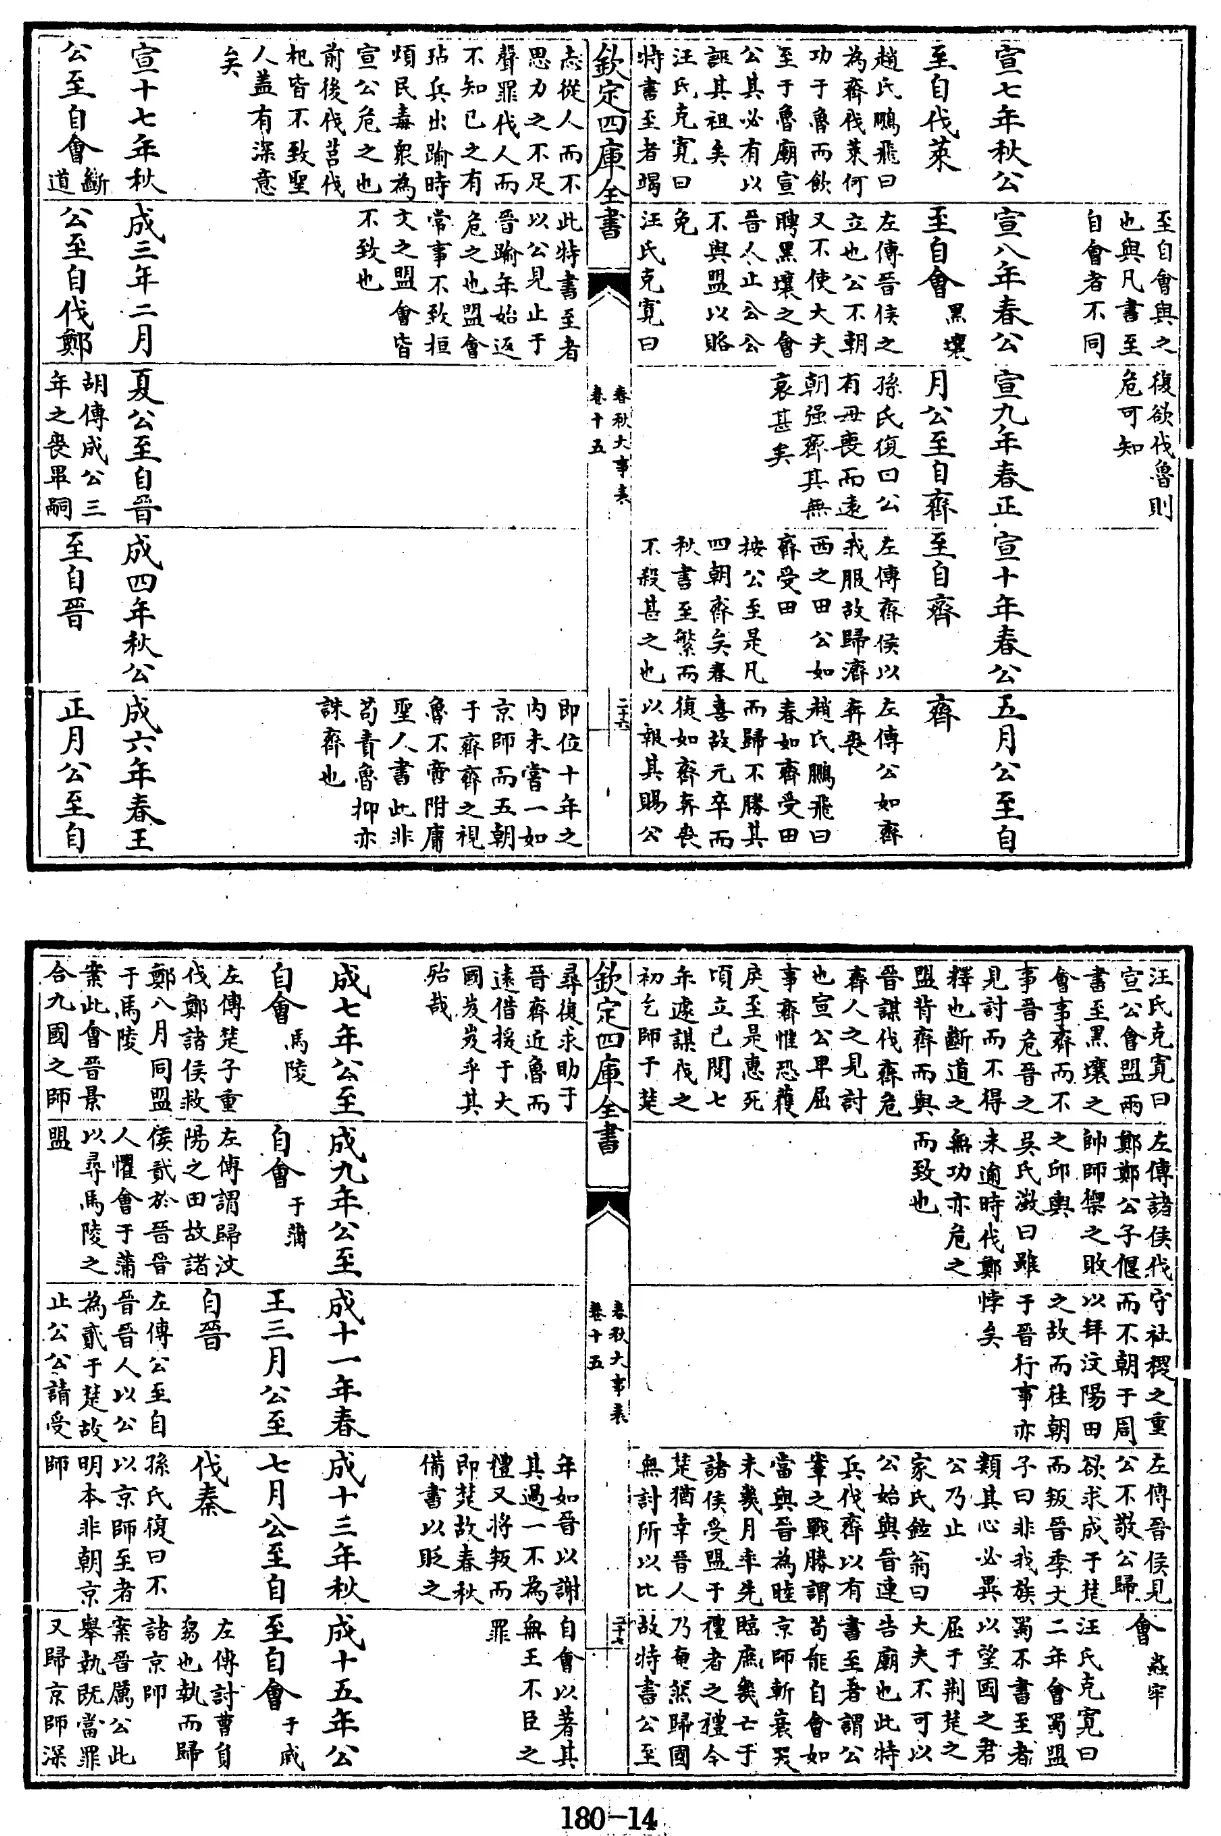 宣七年秋公
至自伐萊
趙氏鵬飛曰
為齊伐萊何
功于魯而飲
至于魯廟宣
公其必有以
誣其祖矣
汪氏克寬曰
特書至者竭
至自會與之
也與凡書至
自會者不同
宣八年春公
至自會黑壤
左傳晉侯之
立也公不朝
又不使大夫
聘黑壤之會
晉人止公公
不與盟以賂
免
汪氏克寬曰
復欲伐魯則
危可知
宣九年春正
月公至自齊
孫氏復曰公
有母喪而遠
朝强齊其無
哀甚矣
宣十年春公
至自齊
左傳齊侯以
我服故歸濟
西之田公如
齊受田
按公至是凡
四朝齊矣春
秋書至繁而
不殺甚之也
五月公至自
齊
左傳公如齊
奔喪
趙氏鵬飛曰
春如齊受田
而歸不勝其
喜故元卒而
復如齊奔喪
以報其賜公
欽定四庫全書
春秋大事表
卷十五
二十六
志從人而不
思力之不足
聲罪伐人而
不知已之有
玷兵出踰時
煩民毒衆為
宣公危之也
前後伐莒伐
杞皆不致聖
人蓋有深意
矣
宣十七年秋
公至自會斷道
此特書至者
以公見止于
晉踰年始返
危之也盟會
常事不致拒
文之盟會皆
不致也
成三年二月
公至自伐鄭
夏公至自晉
胡傳成公三
年之喪畢嗣
成四年秋公
至自晉
即位十年之
内未嘗一如
京師而五朝
于齊齊之視
魯不啻附庸
聖人書此非
苟責魯抑亦
誅齊也
成六年春王
正月公至自
汪氏克寬曰
宣公會盟兩
書至黑壤之
會事齊而不
事晉危晉之
見討而不得
釋也斷道之
盟背齊而與
晉謀伐齊危
齊人之見討
也宣公卑屈
事齊惟恐獲
戾至是惠死
頃立已閲七
年遽謀伐之
初乞師于楚
左傳諸侯伐
鄭鄭公子偃
帥師禦之敗
之邱輿
吳氏澂曰雖
未逾時伐鄭
無功亦危之
而致也
守社稷之重
而不朝于周
以拜汶陽田
之故而往朝
于晉行事亦
悖矣
左傳晉侯見
公不敬公歸
欲求成于楚
而叛晉季文
子曰非我族
類其心必異
公乃止
家氏鉉翁曰
公始與晉連
兵伐齊以有
鞌之戰勝謂
當與晉為睦
未幾月率先
諸侯受盟于
楚猶幸晉人
無討所以比
會蟲牢
汪氏克寬曰
二年會蜀盟
蜀不書至者
以望國之君
屈于荆楚之
大夫不可以
告廟也此特
書至者謂公
茍能自會如
京師斬衰哭
臨庶幾亡于
禮者之禮今
乃奄然歸國
故特書公至
欽定四庫全書
春秋大事表
卷十五
二十七
尋復求助于
晉齊近魯而
遠借援于大
國岌岌乎其
殆哉
成七年公至
自會馬陵
左傳楚子重
伐鄭諸侯救
鄭八月同盟
于馬陵
案此會晉景
合九國之師
成九年公至
自會于蒲
左傳謂歸汶
陽之田故諸
侯貳於晉晉
人懼會于蒲
以尋馬陵之
盟
成十一年春
王三月公至
自晉
左傳公至自
晉晉人以公
為貳于楚故
止公公請受
年如晉以謝
其過一不為
禮又將叛而
即楚故春秋
備書以貶之
成十三年秋
七月公至自
伐秦
孫氏復曰不
以京師至者
明本非朝京
師
自會以著其
無王不臣之
罪
成十五年公
至自會于戚
左傳討曹自
芻也執而歸
諸京師
案晉厲公此
舉執既當罪
又歸京師深
180-14